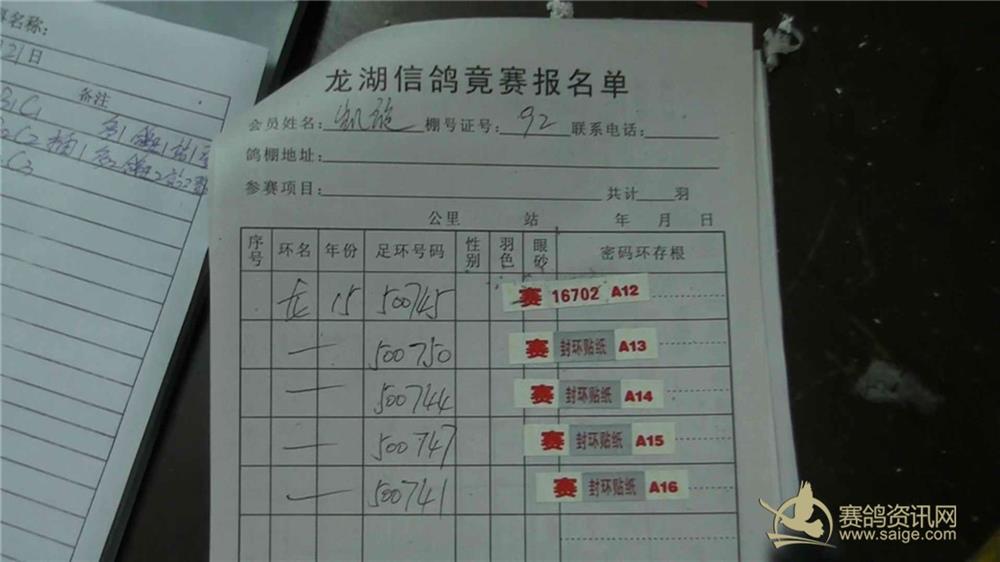 龙湖信鸽竟赛报名单
会员姓名: 凯旋 棚号证号: 92 联系电话:
鸽棚地址:
参赛项目: 共计 羽
公里 站 年 月 日
序号 环名 年份 足环号码 性别 羽色 眼砂 密码环存根
龙 15 500745 赛 16702 A12
一 500750 赛 封环贴纸 A13
一 500744 赛 封环贴纸 A14
一 500747 赛 封环贴纸 A15
一 500741 赛 封环贴纸 A16
名称:
21日
备注
赛鸽资讯网
www.saige.com